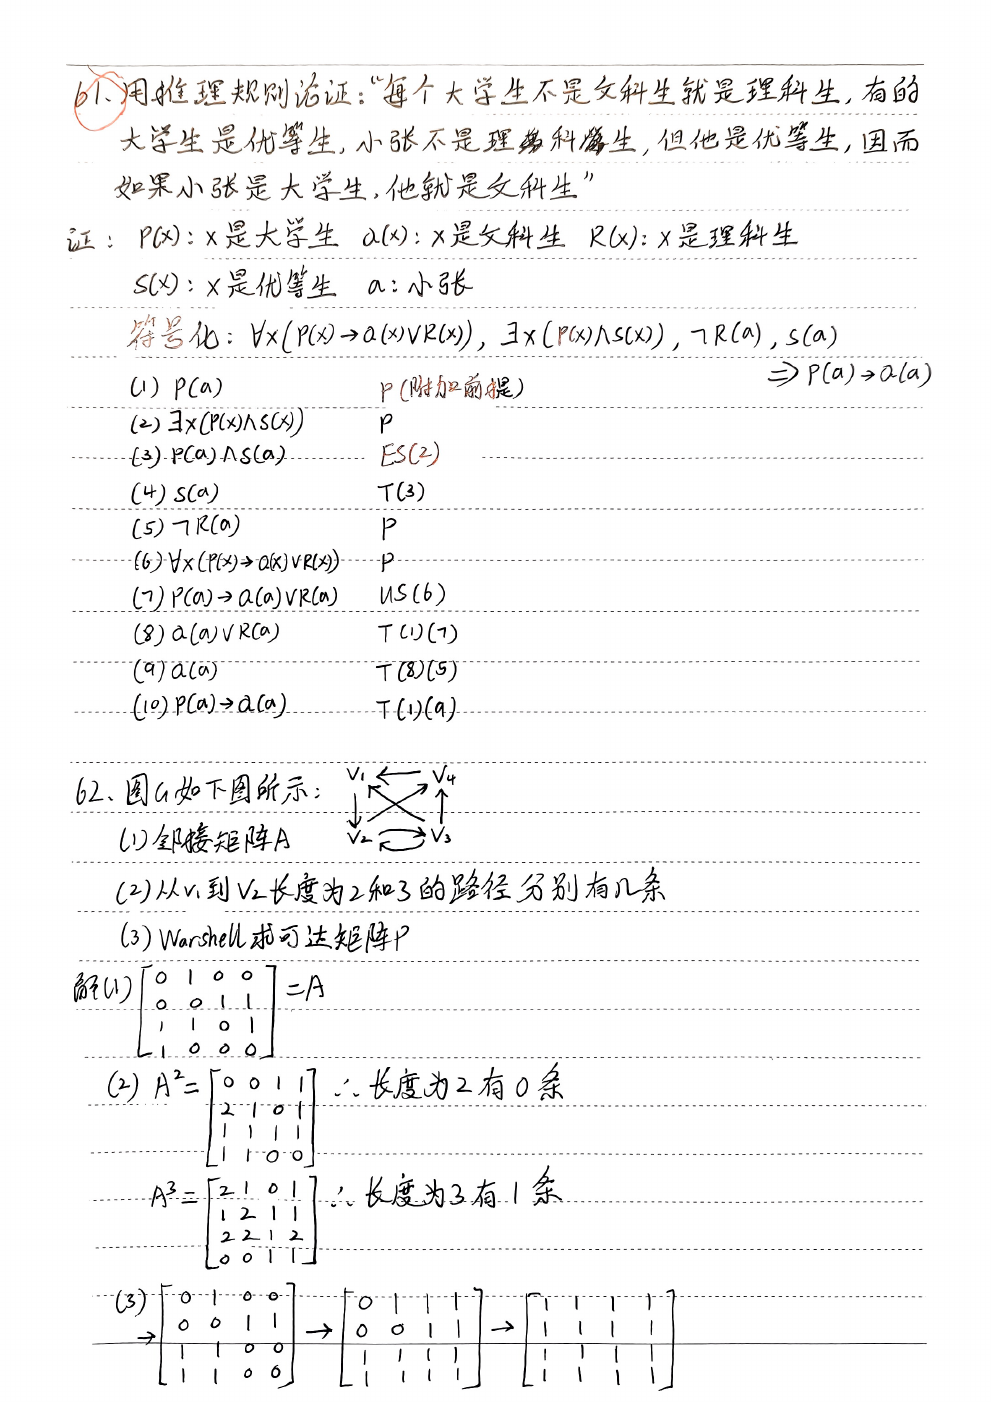 61、用推理规则论证:“每个大学生不是文科生就是理科生,有的
大学生是优等生,小张不是理科生,但他是优等生,因而
如果小张是大学生,他就是文科生”
证: P(x):x是大学生 Q(x):x是文科生 R(x):x是理科生
S(x):x是优等生 a:小张
符号化:∀x(P(x)→Q(x)∨R(x)),∃x(P(x)∧S(x)),¬R(a),S(a)
⇒P(a)→Q(a)
(1) P(a) P(附加前提)
(2) ∃x(P(x)∧S(x)) P
(3) P(a)∧S(a) ES(2)
(4) S(a) T(3)
(5) ¬R(a) P
(6) ∀x(P(x)→Q(x)∨R(x)) P
(7) P(a)→Q(a)∨R(a) US(6)
(8) Q(a)∨R(a) T(1)(7)
(9) Q(a) T(8)(5)
(10) P(a)→Q(a) T(1)(9)
62、图G如下图所示: V1 V4
V2 V3
(1)邻接矩阵A
(2)从V1到V2长度为2和3的路径分别有几条
(3)Warshell求可达矩阵P
解(1) 0 1 0 0 =A
0 0 1 1
1 1 0 1
1 0 0 0
(2) A²= 0 0 1 1 ∴长度为2有0条
2 1 0 1
1 1 1 1
1 1 0 0
A³= 2 1 0 1 ∴长度为3有1条
1 2 1 1
2 2 1 2
0 0 1 1
(3) 0 1 0 0 0 1 1 1 1 1 1 1
→ 0 0 1 1 → 0 0 1 1 → 1 1 1 1
1 1 0 0 1 1 1 1 1 1 1 1
1 1 0 0 1 1 1 1 1 1 1 1